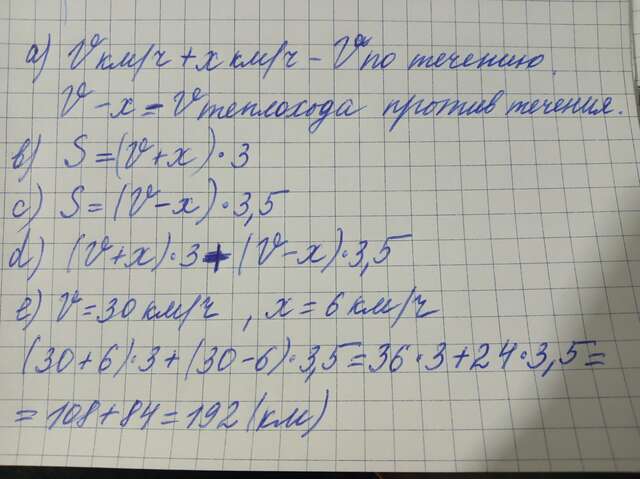 а) V км/ч + x км/ч - V по течению.
V - x = V теплохода против течения.
в) S = (V + x) · 3
с) S = (V - x) · 3,5
d) (V + x) · 3 + (V - x) · 3,5
е) V = 30 км/ч , x = 6 км/ч
(30 + 6) · 3 + (30 - 6) · 3,5 = 36 · 3 + 24 · 3,5 =
= 108 + 84 = 192 (км)